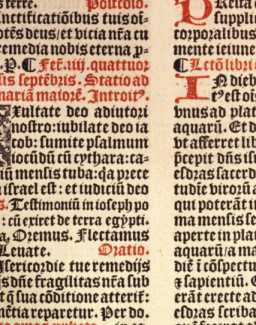 s terre. Postcõio.
nctificatiõibus tuis oĩ-
otẽs deus/et vicia nr̃a cu
remedia nobis eterna p-
. P. C Fer̃.iiij. quattuor
sis septẽbris. Statio ad
nariã maiorẽ. Introit⁹.
Exultate deo adiutori
nostro:iubilate deo ia
cob: sumite psalmum
iocũdũ cũ cythara:ca-
iũ mensis tuba:q̃a prece
israel est: et iudiciũ deo
s. Testimoniũ in ioseph po
: cũ exiret de terra egypti.
a, Oremus. Flectamus
Leuate. Oratio.
Isericordie tue remedijs
sdñe fragilitas nr̃a sub
t q̃ sua cõditione atterit̃:
nẽtia reparetur. Per do.
supplici
corporalibus
mente ieiune
C Lctõ libri
IN dieb
t⁹est oĩ
vnus ad plat
aquarũ. Et d
vt afferret lib
p̃cepit dñs isr
esdras sacerd
tudĩe virorũ a
qui poterãt in
ma mensis se
aperte in plat
aquarũ/a ma
diẽ ĩ cõspectu
⁊ sapientiũ. E
erãt erecte ad
esdras scriba